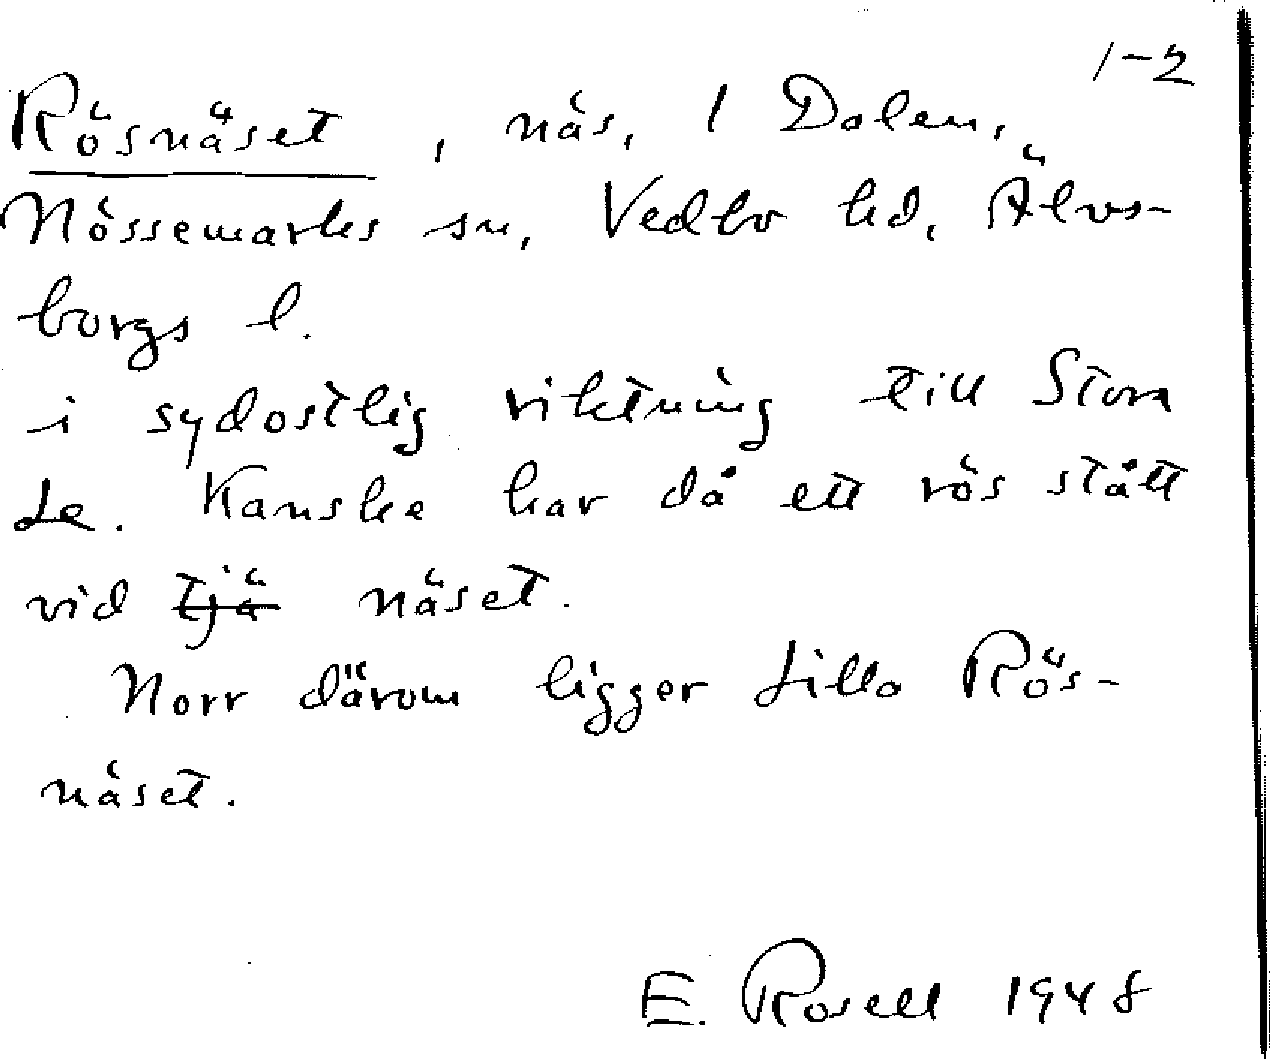 1-2
Rösnäset, näs, 1 Dalen,
Nössemarks sn, Vedbo hd, Älvs-
borgs l.
i sydostlig riktning till Stora
Le. Kanske har då ett rös stått
vid tjä näset.
Norr därom ligger Lilla Rös-
näset.
E. Rosell 1948